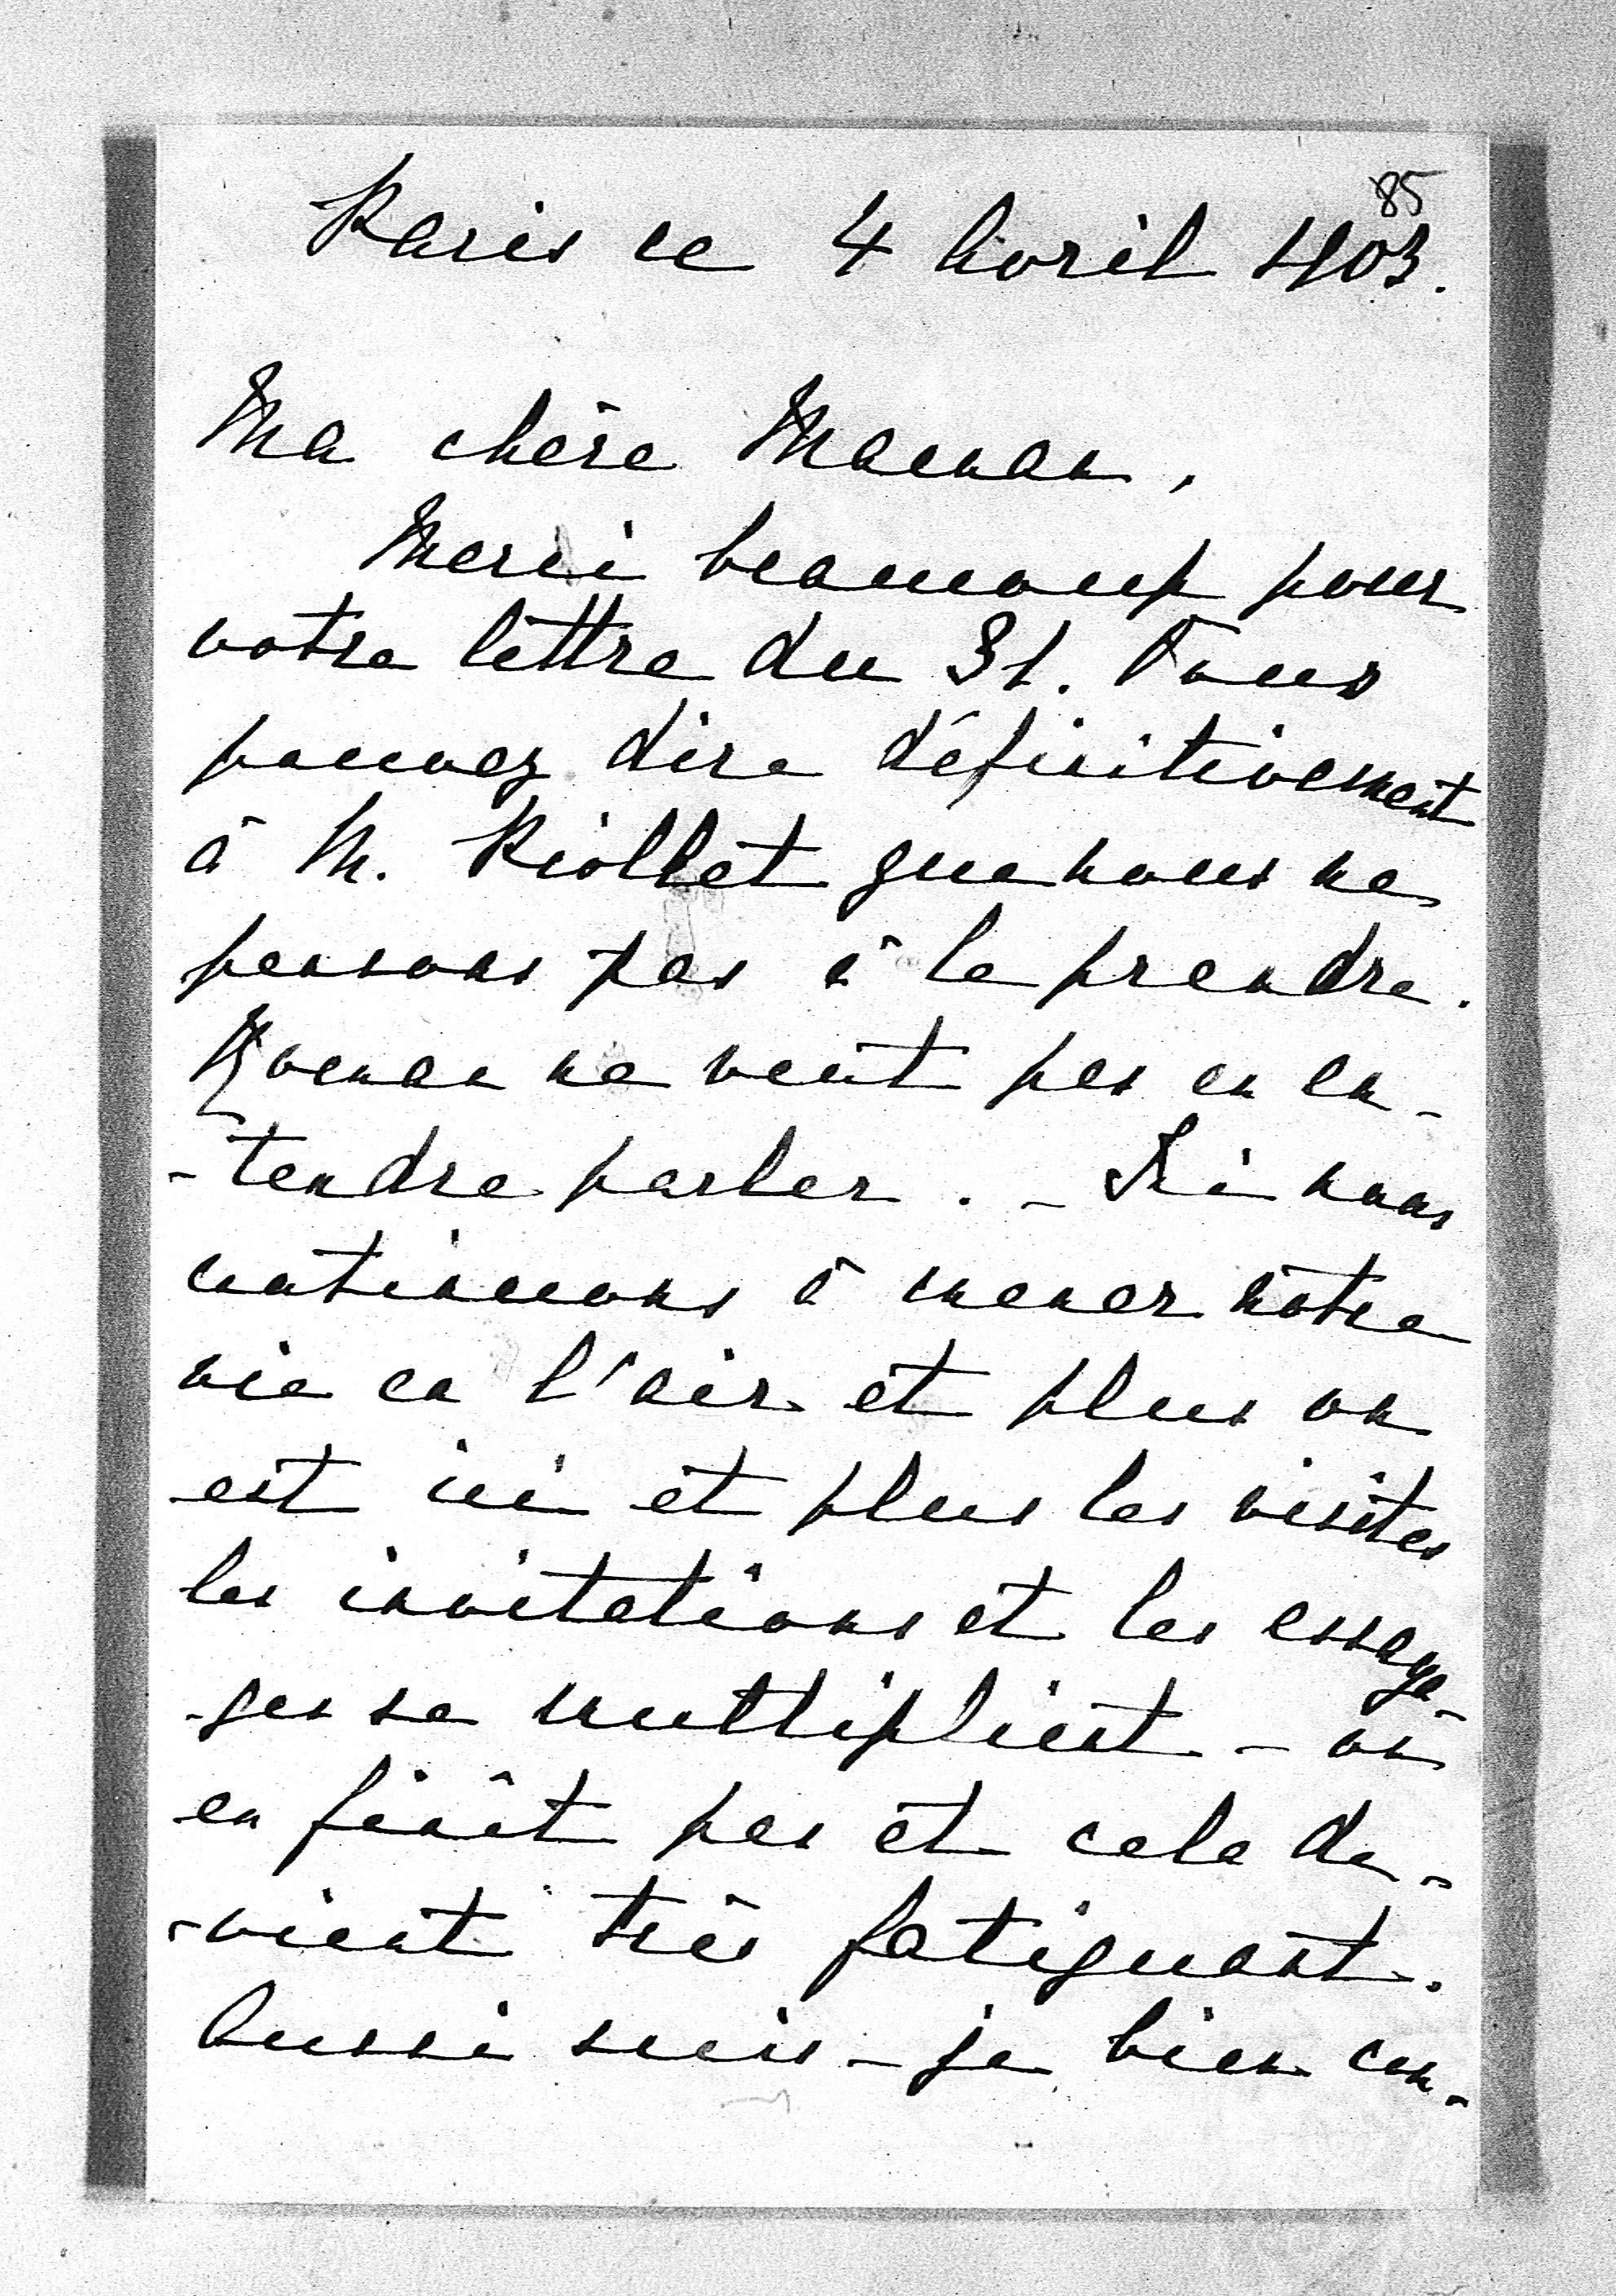 85
Paris ce 4 Avril 1903.
Ma chère Maman,
Merci beaucoup pour
votre lettre du 31. Vous
pouvez dire définitivement
à M. Riollet que nous ne
pensons pas à le prendre.
Maman ne veut pas en en-
-tendre parler. - Ici nous
continuons à mener nôtre
vie en l'air et plus on
est ici et plus les visites
les invitations et les essaya-
-ges se multiplient - on
en finît pas et cela de-
-vient très fatiguant.
Aussi suis-je bien con-